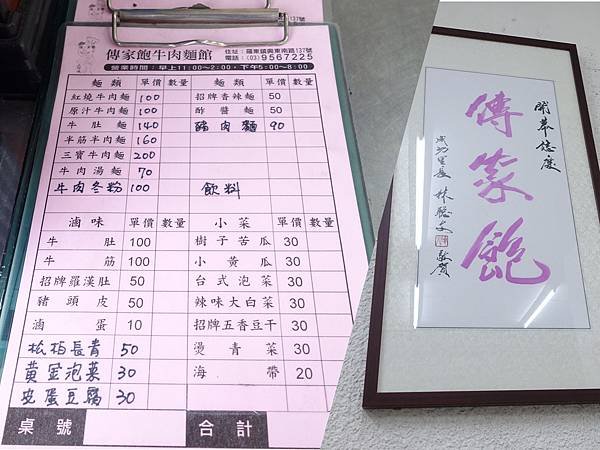 傳家飽牛肉麵館
住址：羅東鎮興東南路137號
電話：(03)9567225
營業時間：早上11:00~2:00，下午5:00~8:00
麵類 單價 數量 麵類 單價 數量
紅燒牛肉麵 100 招牌香辣麵 50
原汁牛肉麵 100 酢醬麵 50
牛肚麵 140 豬肉麵 90
半筋半肉麵 160
三寶牛肉麵 200
牛肉湯麵 70
牛肉冬粉 100 飲料
滷味 單價 數量 小菜 單價 數量
牛肚 100 樹子苦瓜 30
牛筋 100 小黃瓜 30
招牌羅漢肚 50 台式泡菜 30
豬頭皮 50 辣味大白菜 30
滷蛋 10 招牌五香豆干 30
松柏長青 50 燙青菜 30
黃金泡菜 30 海帶 20
皮蛋豆腐 30
桌號 合計
137號
225
開幕誌慶
傳家飽
成功里長 林聰文 敬賀